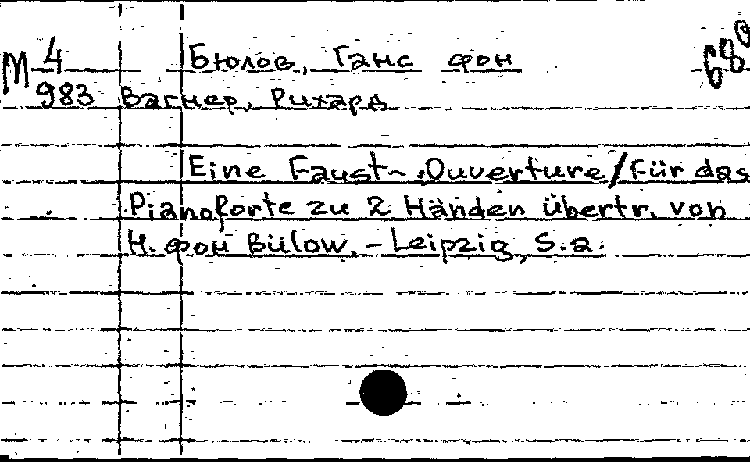 М 4 Бюлов, Ганс фон 68
983 Вагнер, Рихард
Eine Faust-Ouverture/für das
Pianoforte zu 2 Händen übertr. von
H. фон Bülow. - Leipzig, S.a.